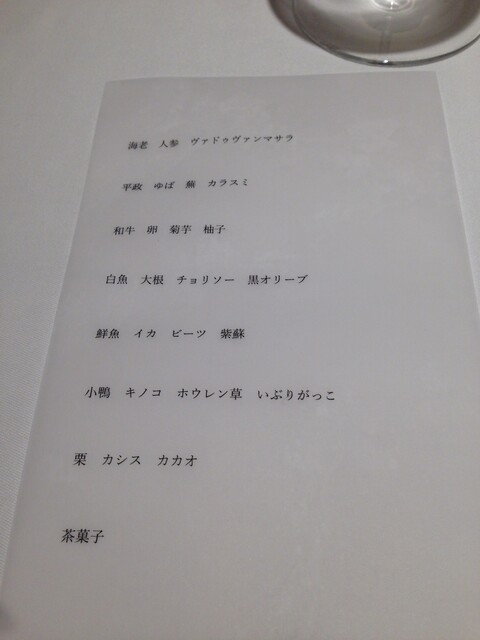 海老 人参 ヴァドゥヴァンマサラ
平政 ゆば 蕪 カラスミ
和牛 卵 菊芋 柚子
白魚 大根 チョリソー 黒オリーブ
鮮魚 イカ ビーツ 紫蘇
小鴨 キノコ ホウレン草 いぶりがっこ
栗 カシス カカオ
茶菓子